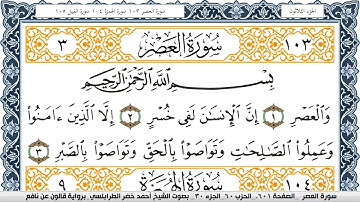 الجزء الثلاثون
سورة العصر ١٠٣ سورة الهمزة ١٠٤ سورة الفيل ١٠٥
١٠٣ سُورَةُ العَصْرِ ٣
بِسْمِ اللَّهِ الرَّحْمَٰنِ الرَّحِيمِ
وَالْعَصْرِ ١ إِنَّ الْإِنسَانَ لَفِي خُسْرٍ ٢ إِلَّا الَّذِينَ ءَامَنُوا
وَعَمِلُوا الصَّالِحَاتِ وَتَوَاصَوْا بِالْحَقِّ وَتَوَاصَوْا بِالصَّبْرِ ٣
١٠٤ سُورَةُ الهُمَزَةِ ٩
سورة العصر الصفحة ٦٠١. الحزب ٦٠ الجزء ٣٠. بصوت الشيخ أحمد خضر الطرابلسي برواية قالون عن نافع